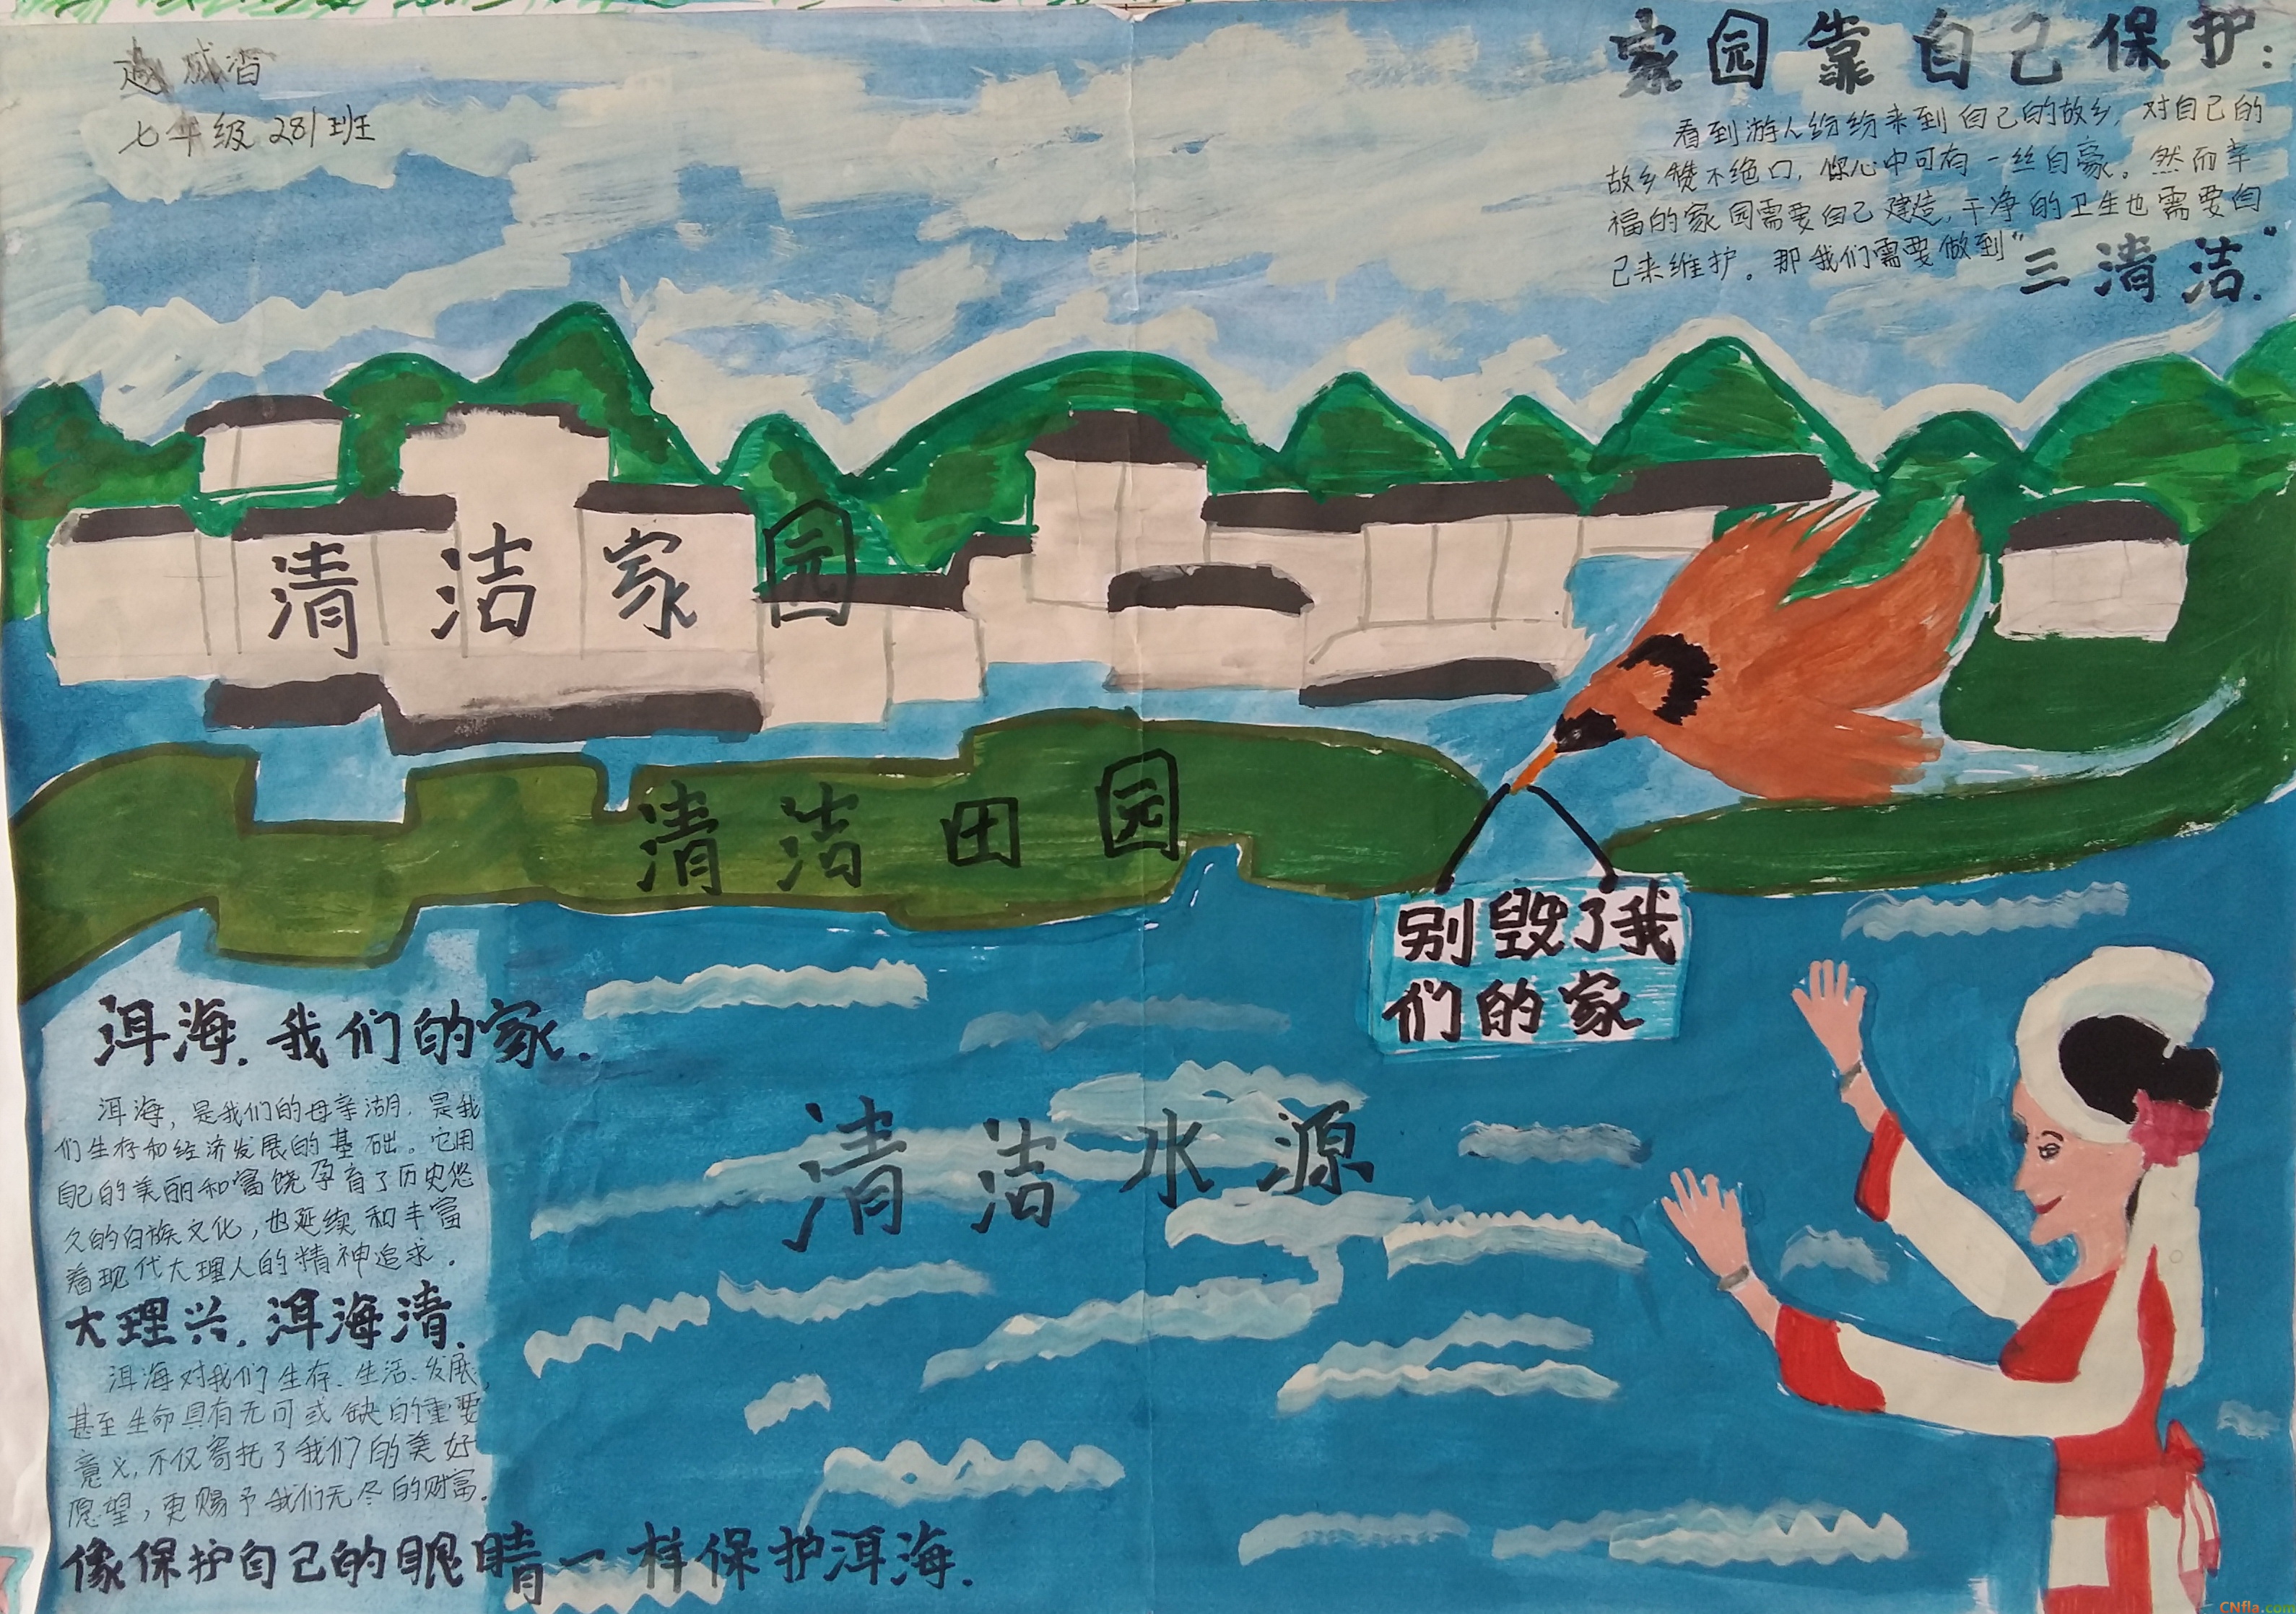 七年级281班
家园靠自己保护:
看到游人纷纷来到自己的故乡,对自己的
故乡赞不绝口,你心中可有一丝自豪。然而幸
福的家园需要自己建造,干净的卫生也需要自
己来维护。那我们需要做到"三清洁."
清洁家园
清洁田园
别毁了我
们的家
清洁水源
洱海.我们的家.
洱海,是我们的母亲湖.是我
们生存和经济发展的基础。它用
自己的美丽和富饶孕育了历史悠
久的白族文化,也延续和丰富
着现代大理人的精神追求.
大理兴.洱海清.
洱海对我们生存、生活、发展,
甚至生命具有无可或缺的重要
意义,不仅寄托了我们的美好
愿望,更赐予我们无尽的财富.
像保护自己的眼睛一样保护洱海.
CNfla.com